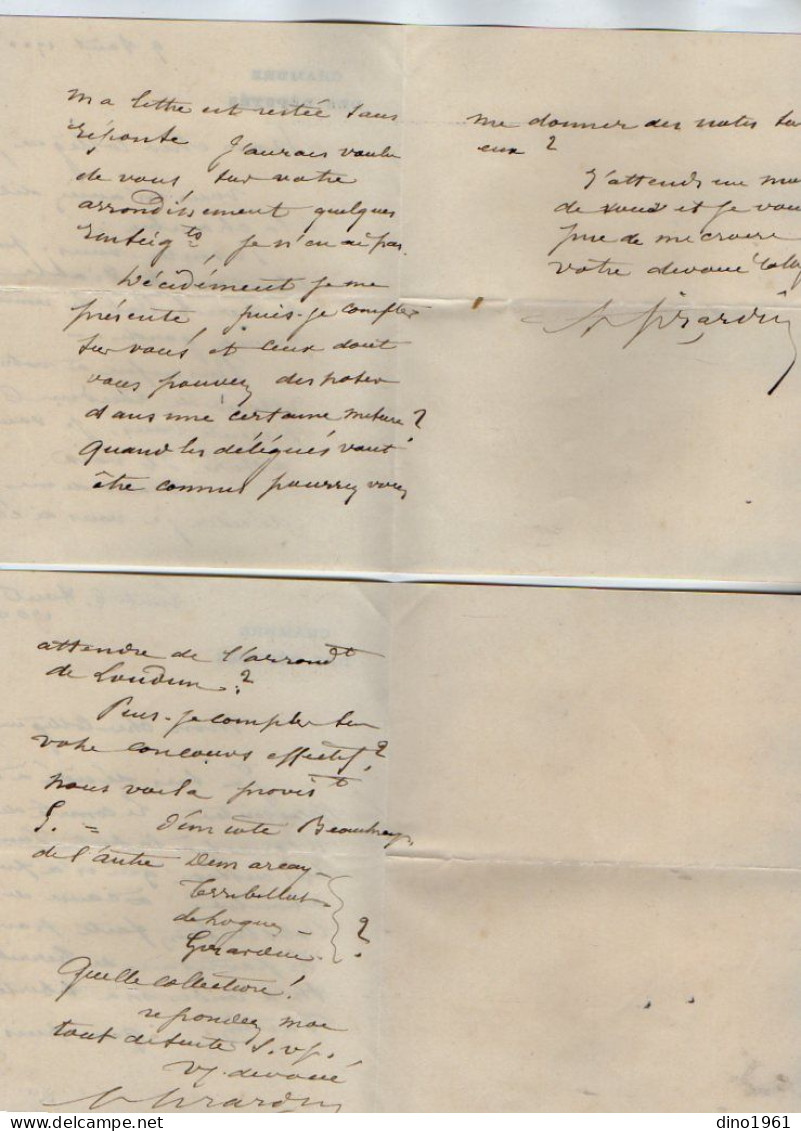 ma lettre est restée sans
réponse J'aurais voulu
de vous sur votre
arrondissement quelques
renseig^ts, je n'en ai pas.
Décidément je me
présente, puis-je compter
sur vous et ceux dont
vous pouvez disposer
dans une certaine mesure?
Quand les délégués vont
être connus pourrez vous
me donner des notes sur
eux?
J'attends un mot
de vous et je vous
prie de me croire
votre dévoué
Girardin
attendre de l'arrond^t
de Loudun?
Puis-je compter sur
votre concours effectif?
nous voilà provis^t
5. = D'un côté Beauchamp
de l'autre Demarçay
Terribillot
de Rogues
Girardin ?
Quelle collection!
répondez moi
tout de suite S.v.p.
V/. dévoué
Girardin
dino1961